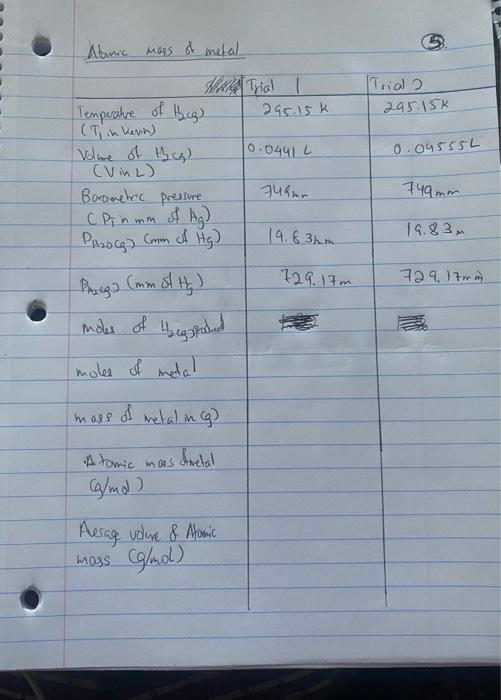 Atomic mass of metal
5
Trial 1 Trial 2
Temperature of H2(g) 295.15 K 295.15K
(T, in Kelvin)
Volume of H2(g) 0.0441 L 0.04555L
(V in L)
Barometric pressure 749mm 749mm
(PT in mm of Hg)
PH2O(g) (mm of Hg) 19.83mm 19.83m
PH2(g) (mm of Hg) 729.17m 729.17mm
moles of H2(g) produced
moles of metal
mass of metal in (g)
Atomic mass of metal
(g/mol)
Average volume & Atomic
mass (g/mol)